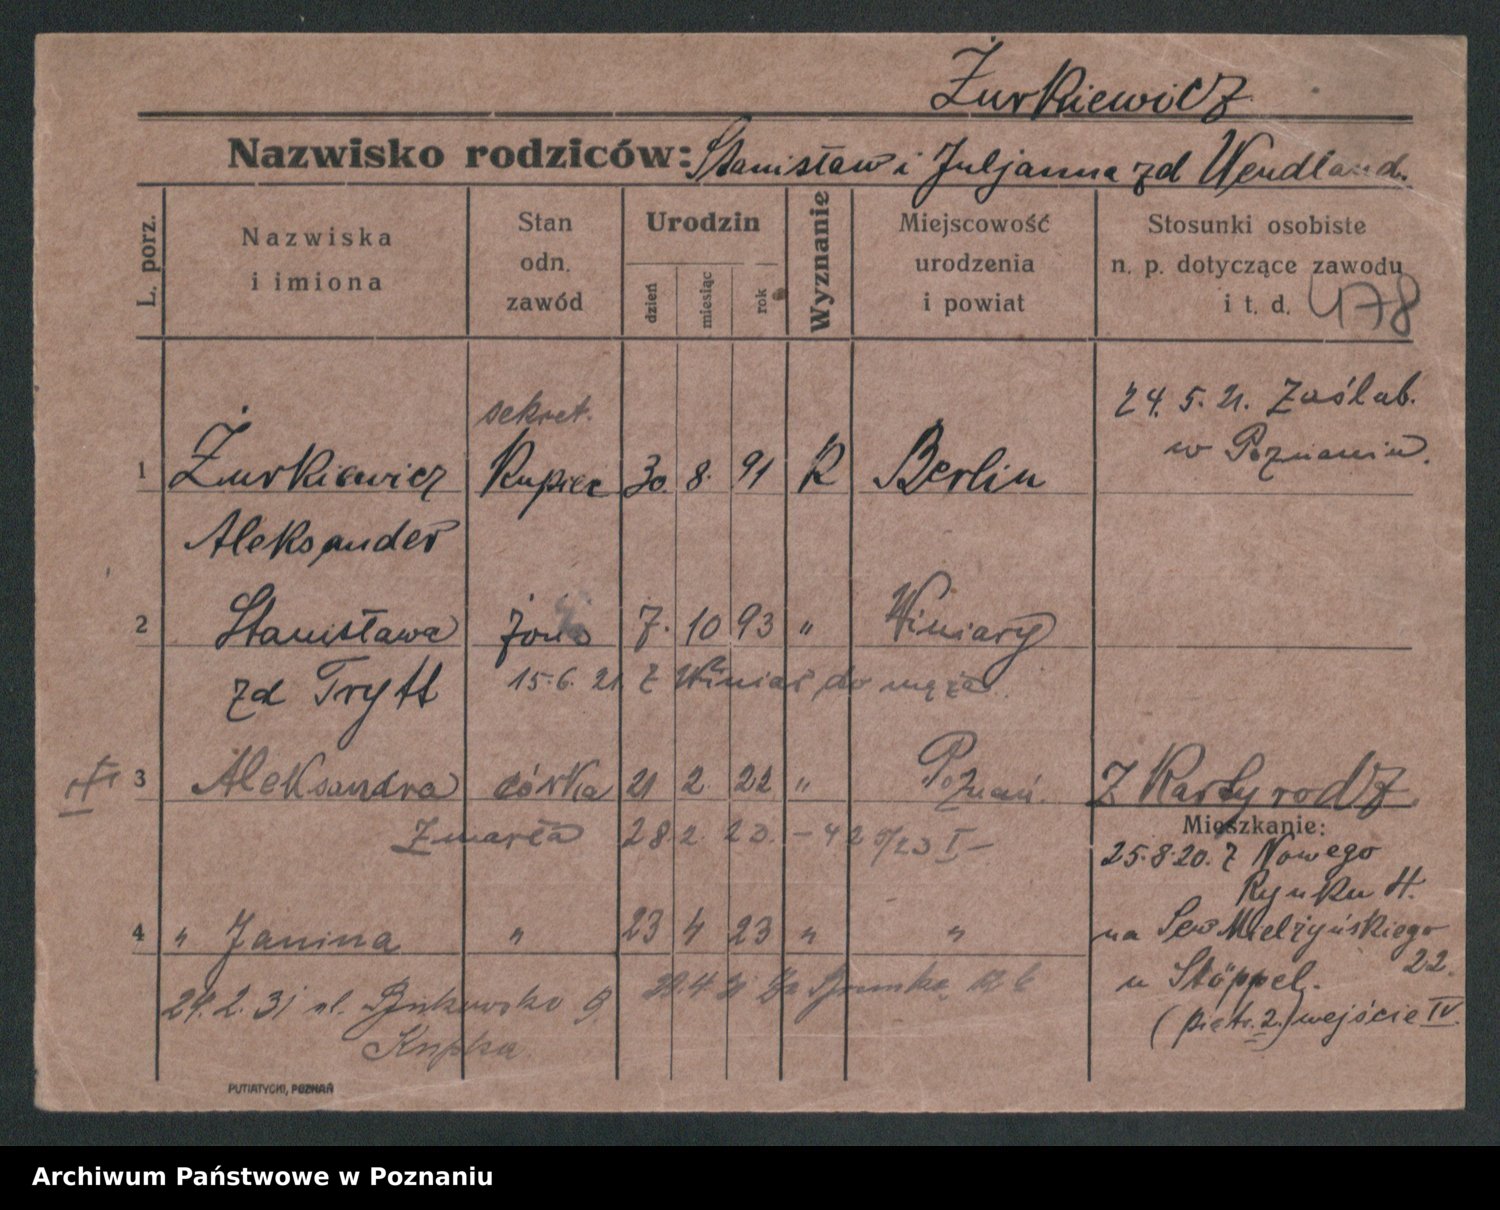 Żurkiewicz
Nazwisko rodziców: Stanisław i Juljanna zd Wendland.
L. porz.
Nazwiska
i imiona
Stan
odn.
zawód
Urodzin
dzień
miesiąc
rok
Wyznanie
Miejscowość
urodzenia
i powiat
Stosunki osobiste
n. p. dotyczące zawodu
i t. d.
478
24. 5. 21. Zaślub.
w Poznaniu.
sekret.
1 Żurkiewicz Kupiec 30. 8. 91 R Berlin
Aleksander
2 Stanisława żona 7. 10 93 " Winiary
zd Trytt
15.6. 21. z Winiar do męża.
3 Aleksandra córka 21 2. 22 " Poznań. Z Karty rodz
Zmarła 28 2. 23. – 425/23 I –
Mieszkanie:
25.8.20. z Nowego
Rynku 4.
4 " Janina " 23 4 23 " "
na Sew Mielżyńskiego
22.
u Stöppel.
(pietr. 2.) wejście IV.
24. 2. 31 ul. Bukowska 9
Kupka
PUTIATYCKI, POZNAŃ
Archiwum Państwowe w Poznaniu